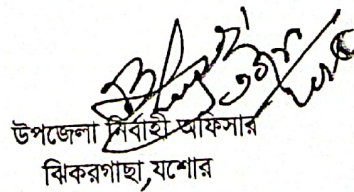 উপজেলা নির্বাহী অফিসার
ঝিকরগাছা,যশোর